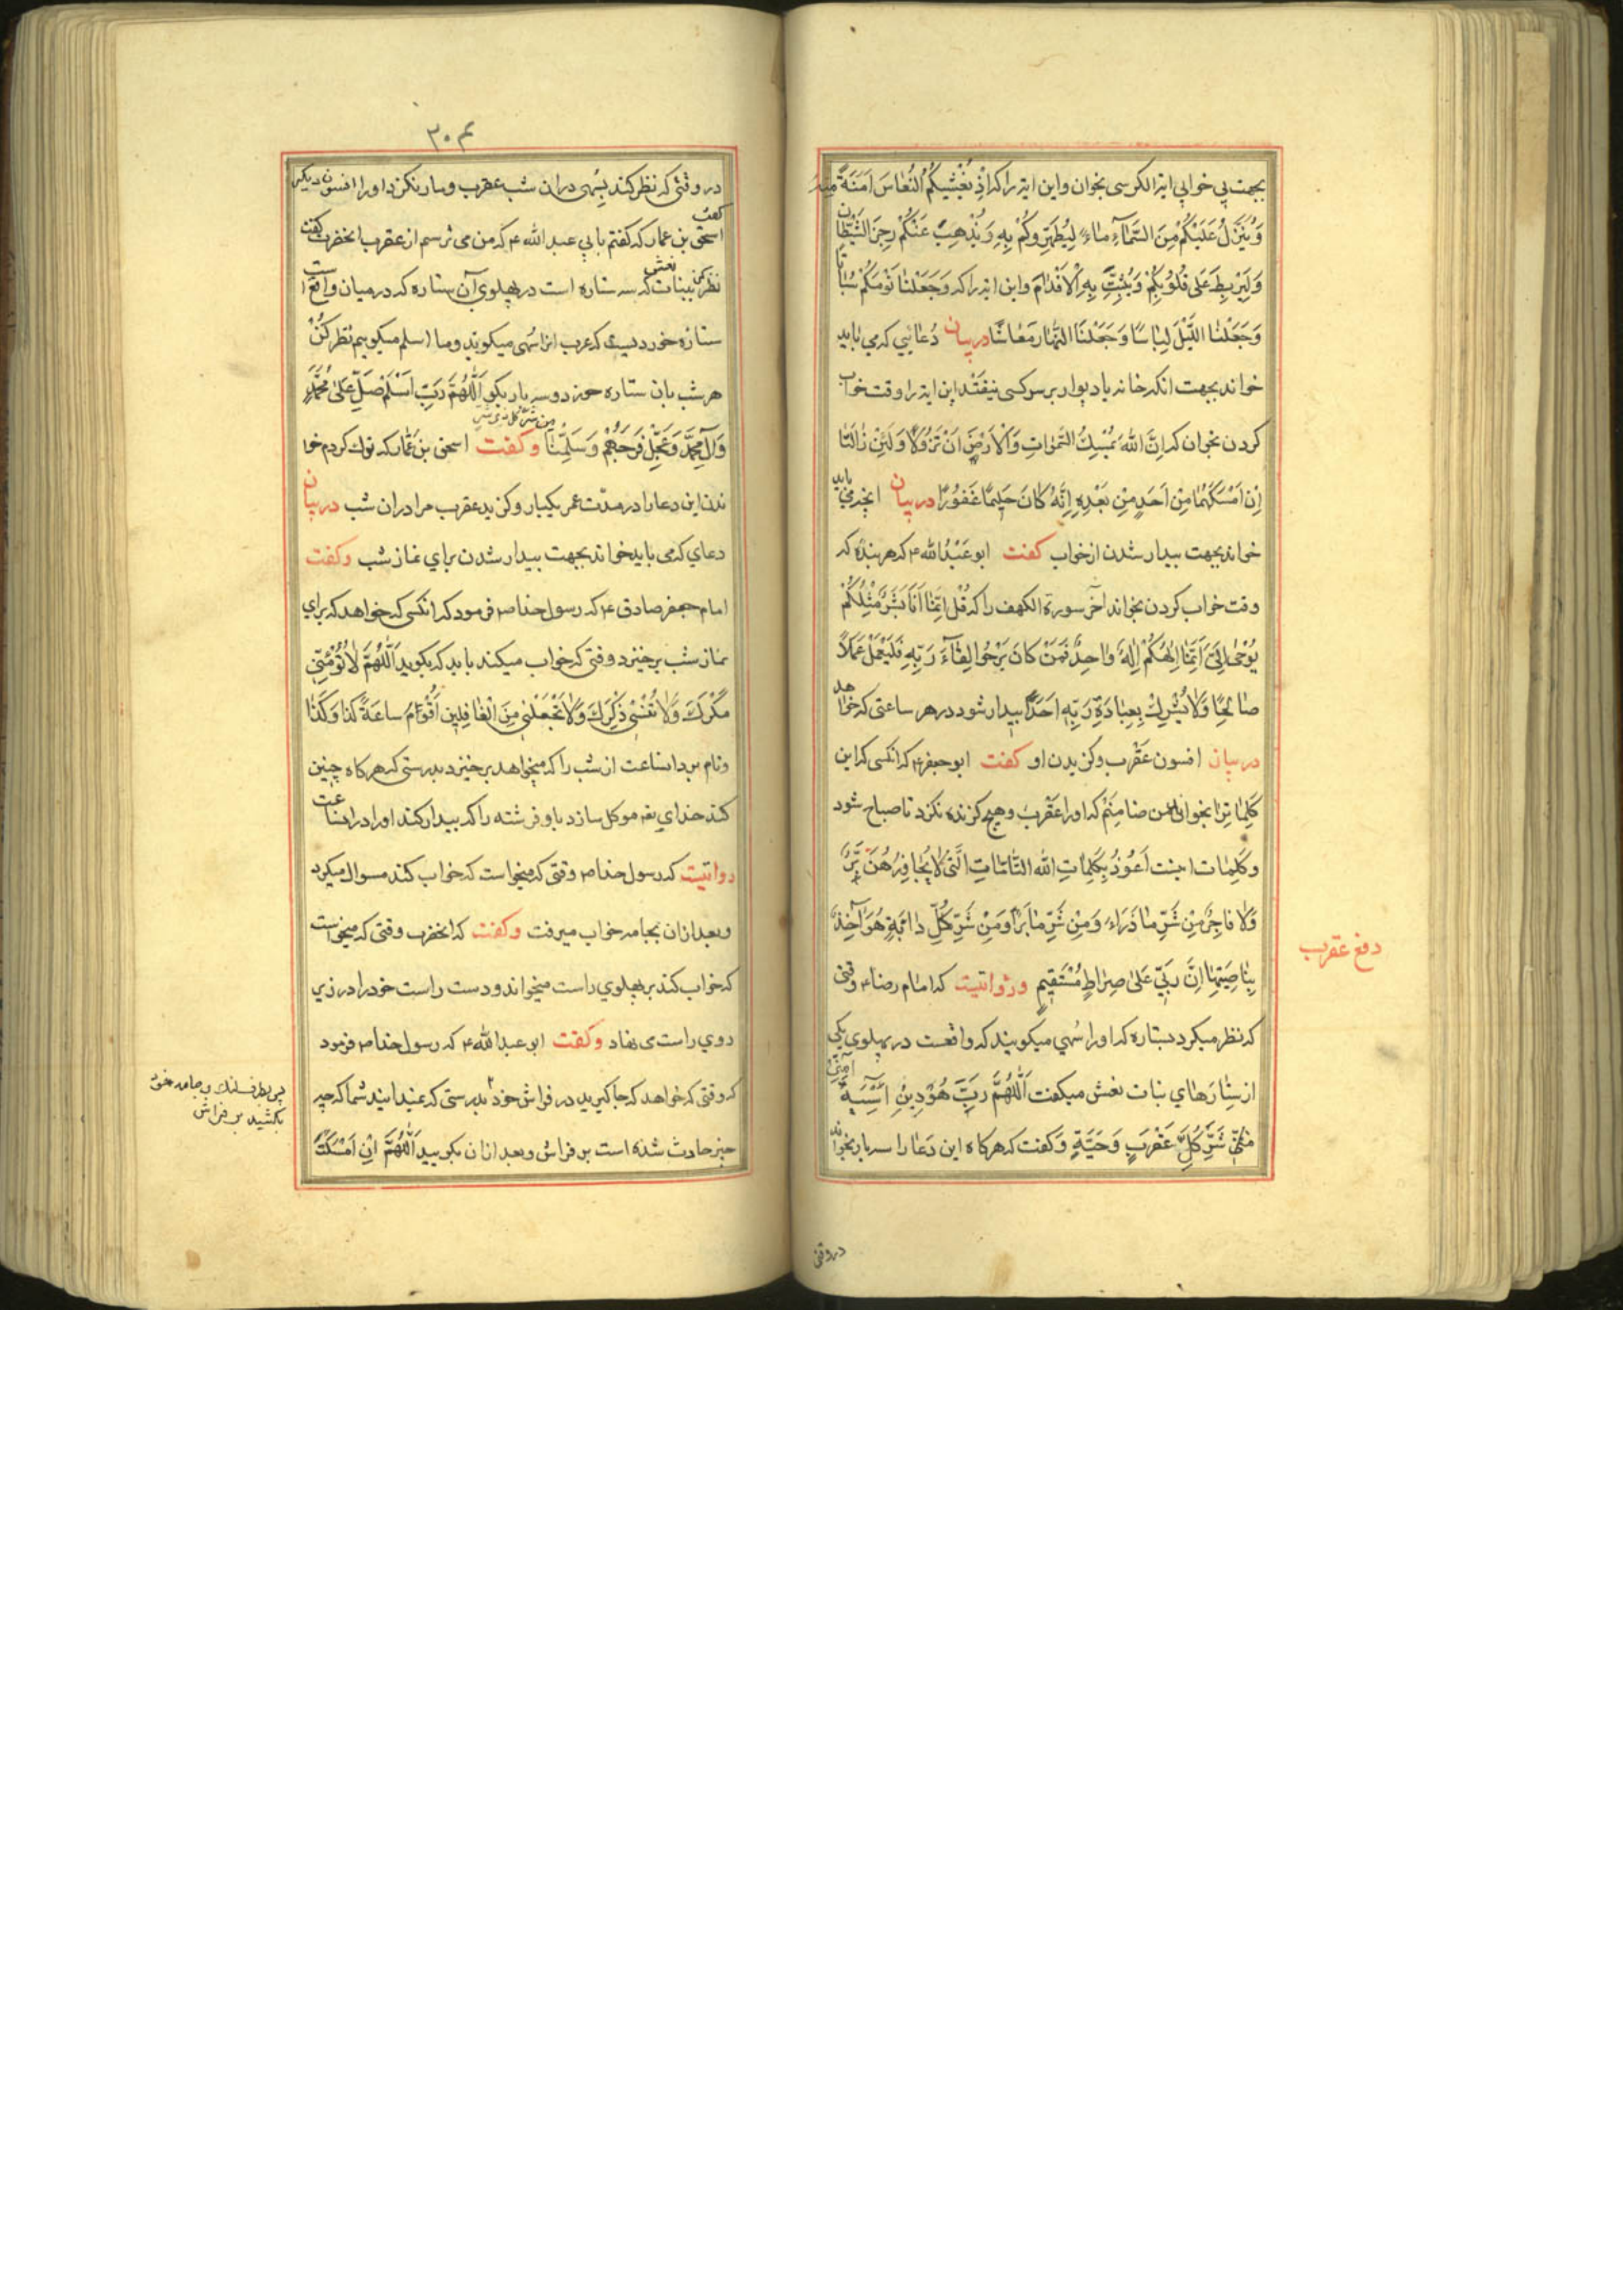 بجهت بی خوابی ایة الکرسی بخوان و این ایة را که اِذْ یُغَشّیکُمُ النُّعاسَ اَمَنَةً مِنْهُ
وَیُنَزِّلُ عَلَیْکُمْ مِنَ السَّمآءِ مٰاءً لِیُطَهِّرَکُمْ بِهِ وَیُذْهِبَ عَنْکُمْ رِجْزَ الشَّیْطٰانِ
وَلِیَرْبِطَ عَلٰی قُلُوبِکُمْ وَیُثَبِّتَ بِهِ الْاَقْدٰامَ و این ایة را که وَجَعَلْنٰا نَوْمَکُمْ سُبٰاتًا
وَجَعَلْنَا اللَّیْلَ لِبٰاسًا وَجَعَلْنَا النَّهٰارَ مَعٰاشًا در بیان دُعٰائی که می بٰاید
خواند بجهت انکه خانه یا دیوار بر سر کسی نیفتد این ایة را وقت خواب
کردن بخوان که اِنَّ اللّٰهَ یُمْسِكُ السَّمٰوٰاتِ وَالْاَرْضَ اَنْ تَزُولٰا وَلَئِنْ زٰالَتٰا
اِنْ اَمْسَکَهُمٰا مِنْ اَحَدٍ مِنْ بَعْدِهِ اِنَّهُ کٰانَ حَلیمًا غَفُورًا در بیان انچه می باید
خواند بجهت بیدار شدن از خواب کفت ابو عَبْدُ الله ع که هر بنده که
وقت خواب کردن بخواند آخر سورة الکهف را که قُلْ اِنَّمٰا اَنَا بَشَرٌ مِثْلُکُمْ
یُوحٰی اِلَیَّ اَنَّمٰا اِلٰهُکُمْ اِلٰهٌ وٰاحِدٌ فَمَنْ کٰانَ یَرْجُوا لِقٰآءَ رَبِّهِ فَلْیَعْمَلْ عَمَلًا
صٰالِحًا وَلٰا یُشْرِكْ بِعِبٰادَةِ رَبِّهِ اَحَدًا بیدار شود در هر ساعتی که خواهد
در بیان افسون عَقْرب و کزیدن او کفت ابو جعفر ع که انکسی که این
کَلِمٰات را بخواند من ضامنم که او را عَقْرب و هیچ کزنده نکزد تا صباح شود
و کَلِمٰات اینست اَعُوذُ بِکَلِمٰاتِ اللّٰهِ التّٰامّٰاتِ الَّتی لٰا یُجٰاوِزُهُنَّ بَرٌّ
وَلٰا فٰاجِرٌ مِنْ شَرِّ مٰا ذَرَاءَ وَمِنْ شَرِّ مٰا بَرَاَ وَمِنْ شَرِّ کُلِّ دٰابَّةٍ هُوَ آخِذٌ
بِنٰاصِیَتِهٰا اِنَّ رَبّی عَلٰی صِرٰاطٍ مُسْتَقیمٍ و روایتیت که امٰام رضا ع وقتی
که نظر میکرد بستاره که او را سُهی میکویند که واقعست در پهلوی یکی
از ستارهای بنات نعش میکفت اَللّٰهُمَّ رَبَّ هُودِ بْنِ اُسَیَّةَ آمِنّی
مِنْ شَرِّ کُلِّ عَقْرَبٍ وَحَیَّةٍ وَکفت که هر کاه این دَعٰا را سه بار بخواند
دفع عقرب
در وقتی
۳۰۴
در وقتی که نظر کند بسُهی در ان شب عقرب و مار نکزد او را افسون دیکر
کفت
اسحق بن عمار که کفتم بابی عبد الله ع که من می ترسم از عقرب انحضرت کفت
نظر کن ببنات نعش که سه ستاره است در پهلوی آن ستاره که در میان واقع است
ستاره خوردیست که عرب انرا سُهی میکویند و ما اسلم میکوییم نظر کُنْ
هر شب بان ستاره خورد و سه بار بکو اَللّٰهُمَّ رَبَّ اَسْلَمَ صَلِّ عَلٰی مُحَمَّدٍ
من شر کل ذی شر
وَآلِ مُحَمَّدٍ وَعَجِّلْ فَرَجَهُمْ وَسَلِّمْنٰا و کفت اسحق بن عَمّٰار که ترك کردم خوا
ندن این دعا را در مدّت عمر یکبار و کزید عقرب مرا در ان شب در بیان
دعای که می باید خواند بجهت بیدار شدن برای نماز شب و کفت
امام جعفر صادق ع که رسول خدا ص فرمود که انکسی که خواهد که برای
نماز شب برخیزد وقتی که خواب میکند باید که بکوید اَللّٰهُمَّ لٰا تُؤْمِنّی
مَکْرَكَ وَلٰا تُنْسِنی ذِکْرَكَ وَلٰا تَجْعَلْنی مِنَ الْغٰافِلینَ اَقُومُ سٰاعَةَ کَذٰا وَکَذٰا
و نام برد انساعت از شب را که میخواهد برخیزد بدرستی که هر کاه چنین
کند خدای تعم موکل سازد باو فرشته را که بیدار کند او را در انساعت
روایتیت که رسول خدا ص وقتی که میخواست که خواب کند مسواك میکرد
و بعد از ان بجامه خواب میرفت و کفت که انحضرت وقتی که میخواست
که خواب کند بر پهلوی راست میخوابند و دست راست خود را در زیر
روی راست می نهاد و کفت ابو عبد الله ع که رسول خدا ص فرمود
که وقتی که خواهد که جا کیرید در فراش خود بدرستی که نمیدانید شما که چه
چیز حادث شده است بر فراش و بعد از ان بکویید اَللّٰهُمَّ اِنْ اَمْسَکْتَ
پس بطرف لنك و جامه خود
بکشید بر فراش